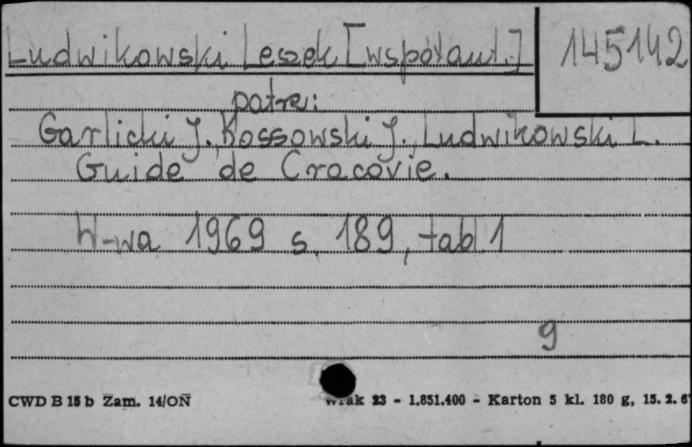 Ludwikowski Leszek [współaut.] 145142
patrz:
Garlicki J., Kossowski J., Ludwikowski L.
Guide de Cracovie.
W-wa 1969 s. 189, tabl 1
9
CWD B 15 b Zam. 14/OŃ - 1.851.400 - Karton 5 kl. 180 g, 15. 2. 6